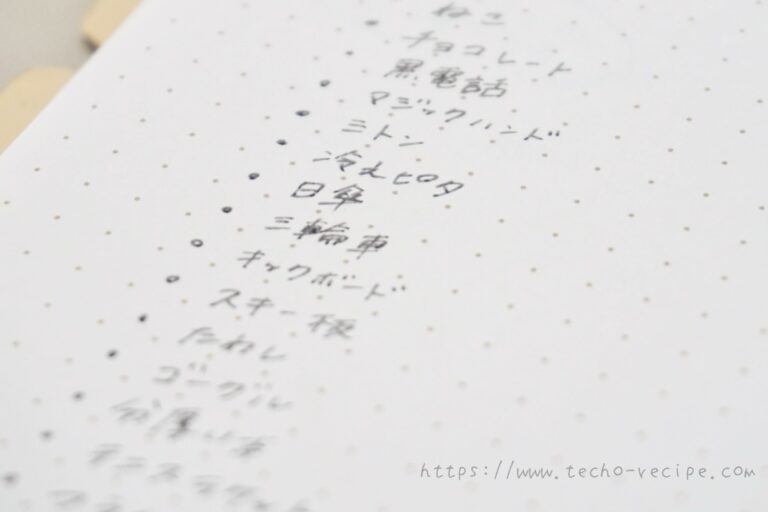 ねこ
チョコレート
黒電話
マジックハンド
ミトン
冷えピタ
日傘
三輪車
キックボード
スキー板
たわし
ゴーグル
分厚い本
テニスラケット
https://www.techo-recipe.com